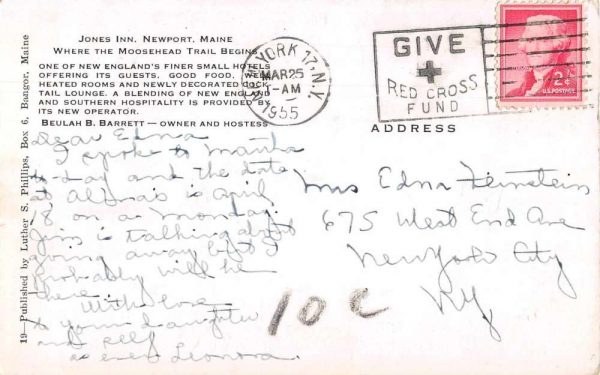 JONES INN, NEWPORT, MAINE
WHERE THE MOOSEHEAD TRAIL BEGINS
ONE OF NEW ENGLAND'S FINER SMALL HOTELS
OFFERING ITS GUESTS, GOOD FOOD, WELL
HEATED ROOMS AND NEWLY DECORATED COCK
TAIL LOUNGE. A BLENDING OF NEW ENGLAND
AND SOUTHERN HOSPITALITY IS PROVIDED BY
ITS NEW OPERATOR.
BEULAH B. BARRETT — OWNER AND HOSTESS
19—Published by Luther S. Phillips, Box 6, Bangor, Maine
NEW YORK 17, N.Y.
MAR 25
1-AM
1955
GIVE
RED CROSS
FUND
2¢
U.S. POSTAGE
ADDRESS
Dear Edna
I spoke to Martha
to-day and the date
at Alma's is April
18 on a Monday.
Jim is talking about
going away but I
probably will be
here.
With love
to your daughter
and self
as ever Leonora.
Mrs Edna Feinstein
675 West End Ave
New York City
NY
10c